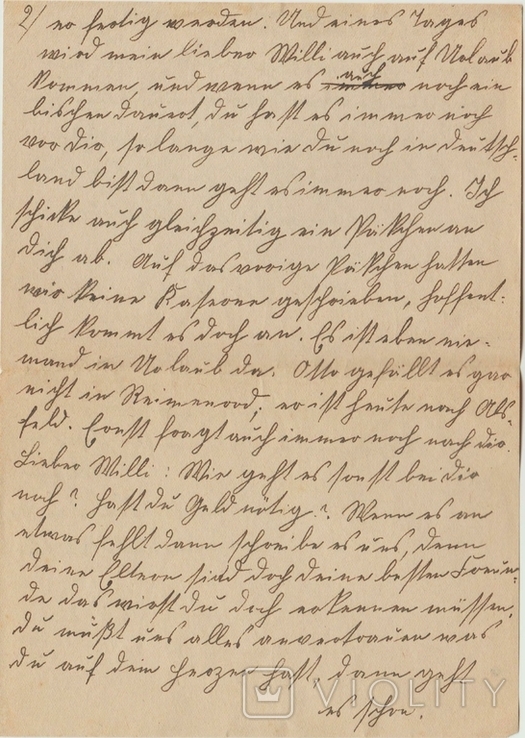 2/ er fertig werden. Und eines Tages
wird mein lieber Willi auch auf Urlaub
kommen, und wenn es auch noch ein
bischen dauert, du hast es immer noch
vor dir, so lange wie du noch in Deutsch-
land bist dann geht es immer noch. Ich
schicke auch gleichzeitig ein Päkchen an
dich ab. Auf das vorige Päkchen hatten
wir keine Kaserne geschrieben, hoffent-
lich kommt es doch an. Es ist eben nie-
mand in Urlaub da. Otto gefällt es gar
nicht in Reimenrod, er ist heute nach Als-
feld. Ernst fragt auch immer noch nach dir.
Lieber Willi: Wie geht es sonst bei dir
noch? Hast du Geld nötig? Wenn es an
etwas fehlt dann schreibe es uns, denn
deine Eltern sind doch deine besten Freun-
de das wirst du doch erkennen müssen.
du mußt uns alles anvertrauen was
du auf dem Herzen hast, dann geht
es schon.
VIOLITY